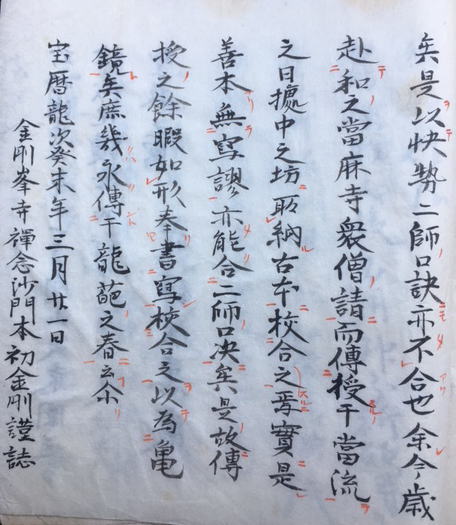 矣是以快勢二師口訣亦不合也余今歳
赴和之當麻寺衆僧請而傳授于當流
之日摭中之坊取納古本校合之焉實是
善本無写謬亦能合二師口决矣是故傳
授之餘暇如形奉書寫校合之以為亀
鏡矣庶幾永傳于龍葩之春云尓
宝暦龍次癸未年三月廿一日
金剛峯寺禅念沙門本初金剛謹誌